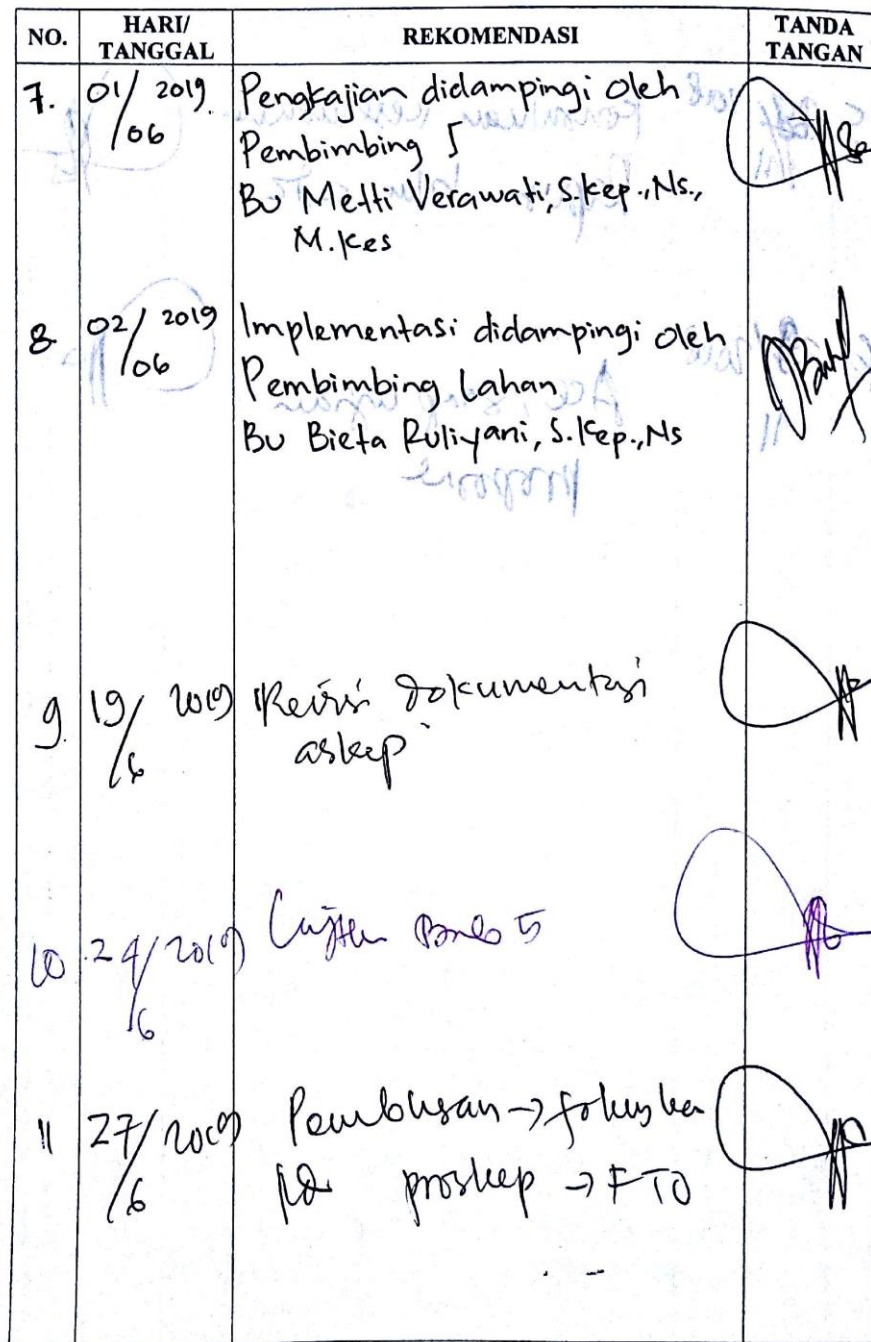 NO. HARI/ TANGGAL REKOMENDASI TANDA TANGAN
7. 01/06 2019. Pengkajian didampingi oleh
Pembimbing 5
Bu Metti Verawati, S.Kep.,Ns.,
M.Kes
8. 02/06 2019 Implementasi didampingi oleh
Pembimbing Lahan
Bu Bieta Ruliyani, S.Kep.,Ns
9. 19/6 2019 Revisi dokumentasi
askep
10. 24/6 2019
11 27/6 2019
proskep → FTO